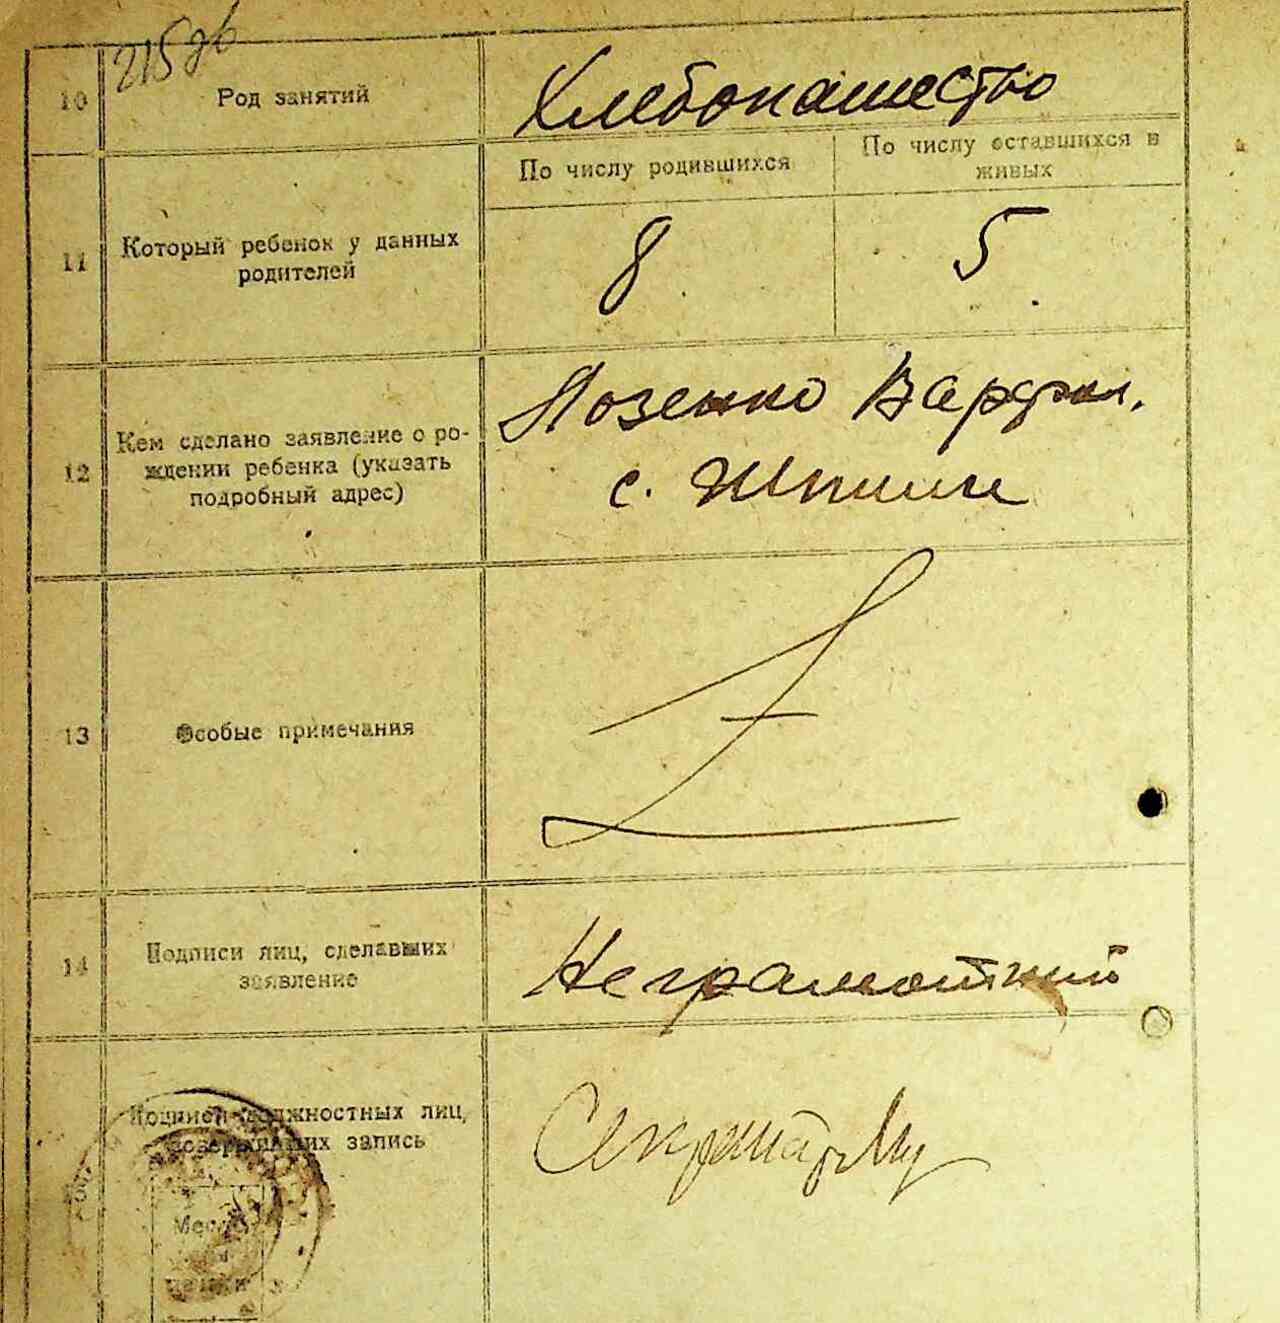 215 об
10
Род занятий
Хлебопашество
11
Который ребенок у данных
родителей
По числу родившихся
По числу оставшихся в
живых
8
5
12
Кем сделано заявление о ро-
ждении ребенка (указать
подробный адрес)
с. Шпили
13
Особые примечания
14
Подписи лиц, сделавших
заявление
Неграмотный
Подписи должностных лиц,
совершивших запись
Секретарь
Место
печати